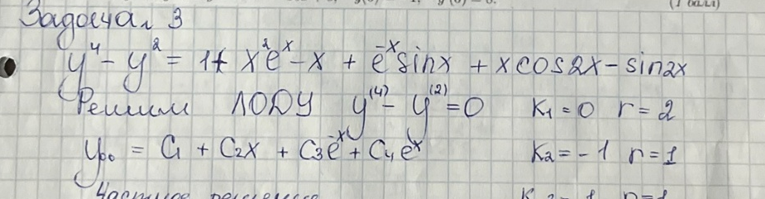 (1 балл)
Задача 3
y⁴ - y² = 1 + x²eˣ - x + e⁻ˣsinx + xcos2x - sin2x
Решим ЛОДУ y⁽⁴⁾ - y⁽²⁾ = 0 K₁ = 0 r = 2
y₀₀ = C₁ + C₂x + C₃e⁻ˣ + C₄eˣ K₂ = -1 r = 1
Частное